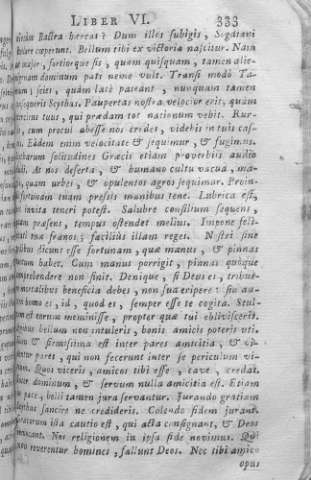 LIBER VI. 333
circum Bactra hæreas? Dum illos subigis, Sogdiani
bellare cœperunt. Bellum tibi ex victoria nascitur. Nam
major, fortiorque sis, quam quisquam, tamen alie-
dominum pati nemo vult. Transi modò Ta-
; scies, quàm latè pateant, nunquam tamen
Scythas. Paupertas nostra velocior erit, quàm
tuus, qui prædam tot nationum vehit. Rur-
, cum procul abesse nos credes, videbis in tuis cas-
. Eâdem enim velocitate & sequimur, & fugimus.
solitudines Græcis etiam proverbiis audio
. At nos deserta, & humano cultu vacua, ma-
quam urbes, & opulentos agros sequimur. Proin-
fortunam tuam pressis manibus tene. Lubrica est,
invita teneri potest. Salubre consilium sequens,
præsens, tempus ostendet melius. Impone feli-
tuæ frænos; faciliùs illam reges. Nostri sine
dicunt esse fortunam, quæ manus, & pinnas
habet. Cum manus porrigit, pinnas quoque
comprehendere non sinit. Denique, si Deus es, tribue-
mortalibus beneficia debes, non sua eripere: sin au-
homo es, id, quod es, semper esse te cogita. Stul-
eorum meminisse, propter quæ tui obliviscaris.
bellum non intuleris, bonis amicis poteris uti.
& firmissima est inter pares amicitia, & vi-
inter pares, qui non fecerunt inter se periculum vi-
. Quos viceris, amicos tibi esse, cave, credas.
dominum, & servum nulla amicitia est. Etiam
pace, belli tamen jura servantur. Jurando gratiam
sancire ne credideris. Colendo fidem jurant.
ista cautio est, qui acta consignant, & Deos
. Nos religionem in ipsa fide novimus. Qui
reverentur homines, fallunt Deos. Nec tibi amico
opus